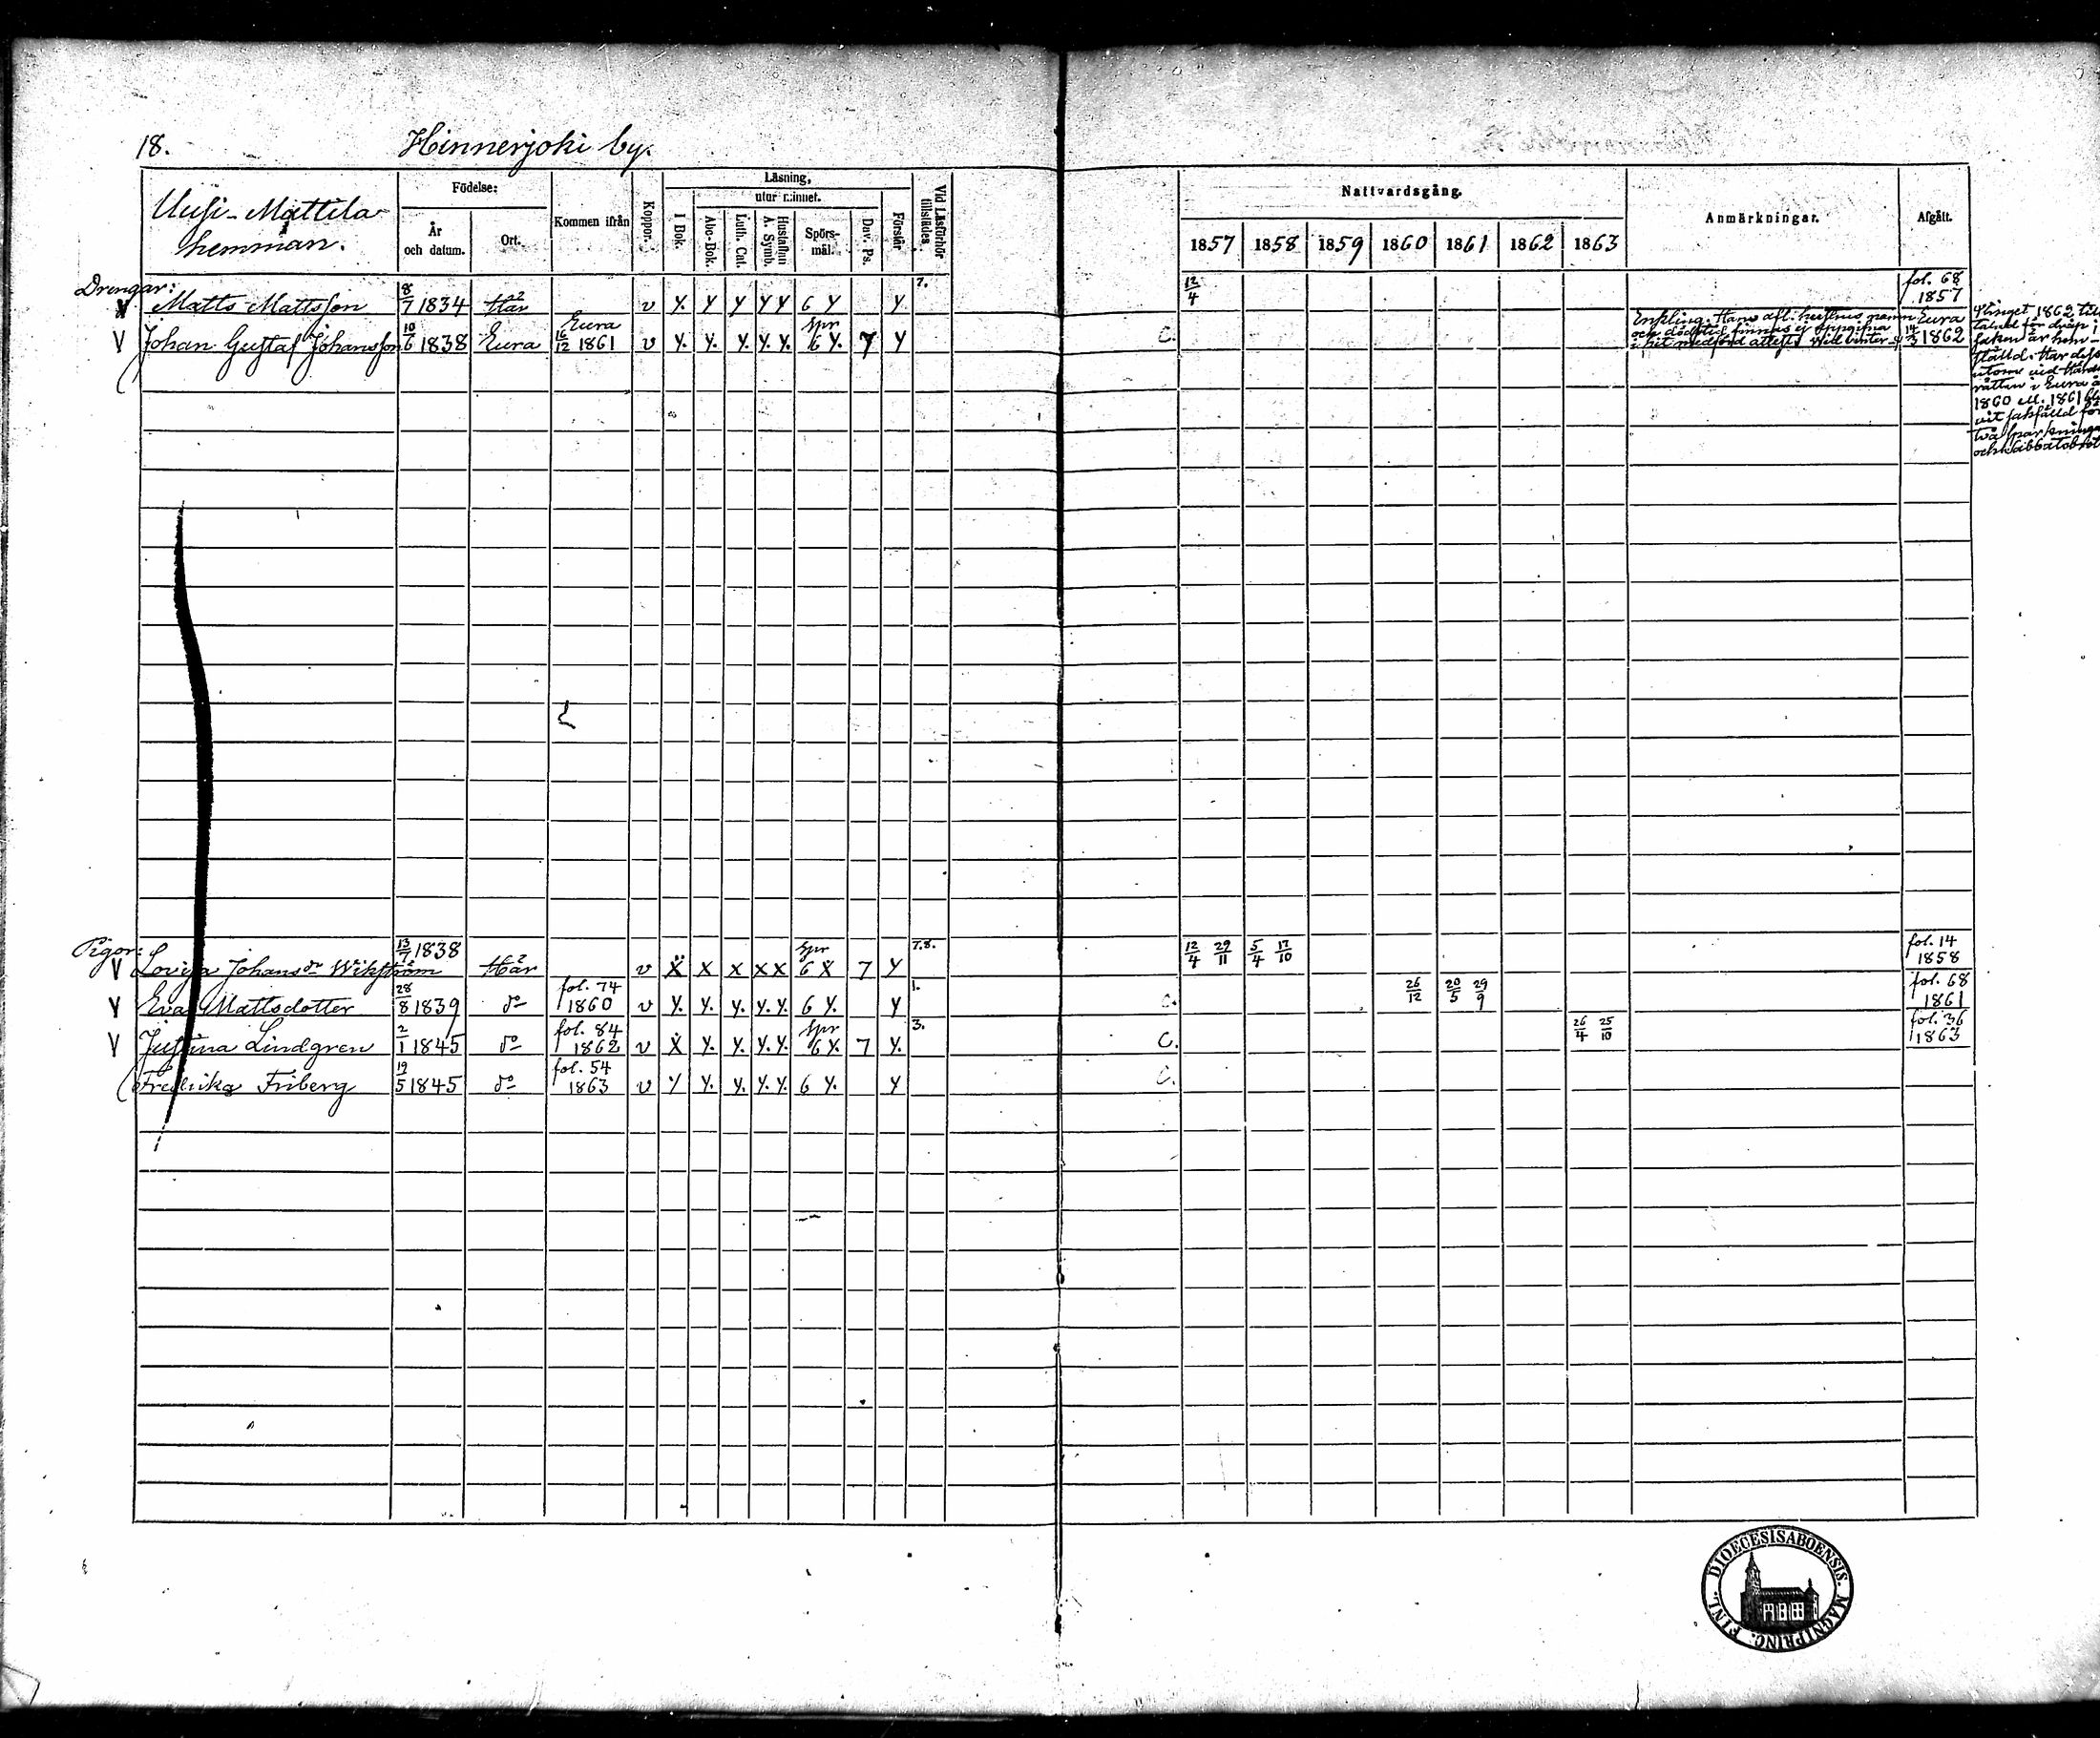 18. Hinnerjoki by.
Uusi-Mattila
hemman.
Födelse:
År och datum.
Ort.
Kommen ifrån
Koppor.
Läsning,
utur minnet.
I Bok.
Abc-Bok.
Luth. Cat.
Hustaflan A. Symb.
Spörs-mål.
Dav. Ps.
Förstår
Vid Läsförhör tillstädes.
Nattvardsgång.
1857 1858 1859 1860 1861 1862 1863
Anmärkningar.
Afgått.
Drengar:
V Matts Mattsson 8/7 1834 Här v y. y y y y 6 y y 7. 12/4 fol. 68 1857
V Johan Gustaf Johansson 10/6 1838 Eura Eura 16/12 1861 v y. y. y. y. y. spr 6 y. 7 y C. Eura 14/3 1862
Enkling. Hans afl. hustrus namn
och dödstid finnas ej uppgifna
i hit medförd attest
Tinget 1862 till
talad för dråp i
saken är hem-
ställd. Har dess
utom vid Härads
rätten i Eura å
1860 ell. 1861 bli
vit sakfälld för
två
och Sabbatsbrott
Pigor:
V Lovisa Johansdr Wikström 13/7 1838 Här v x x x x x spr 6 x 7 y 7.8. 12/4 29/11 5/4 17/10 fol. 14 1858
V Eva Mattsdotter 28/8 1839 do fol. 74 1860 v y. y. y. y. y. 6 y. y 1. C. 26/12 20/5 29/9 fol. 68 1861
V Justina Lindgren 2/1 1845 do fol. 84 1862 v x y. y. y. y. spr 6 y. 7 y. 3. C. 26/4 25/10 fol. 36 1863
Fredrika Friberg 19/5 1845 do fol. 54 1863 v y y. y. y. y. 6 y. y C.
DIOECESIS ABOENSIS. MAGNI PRINC. FINL.